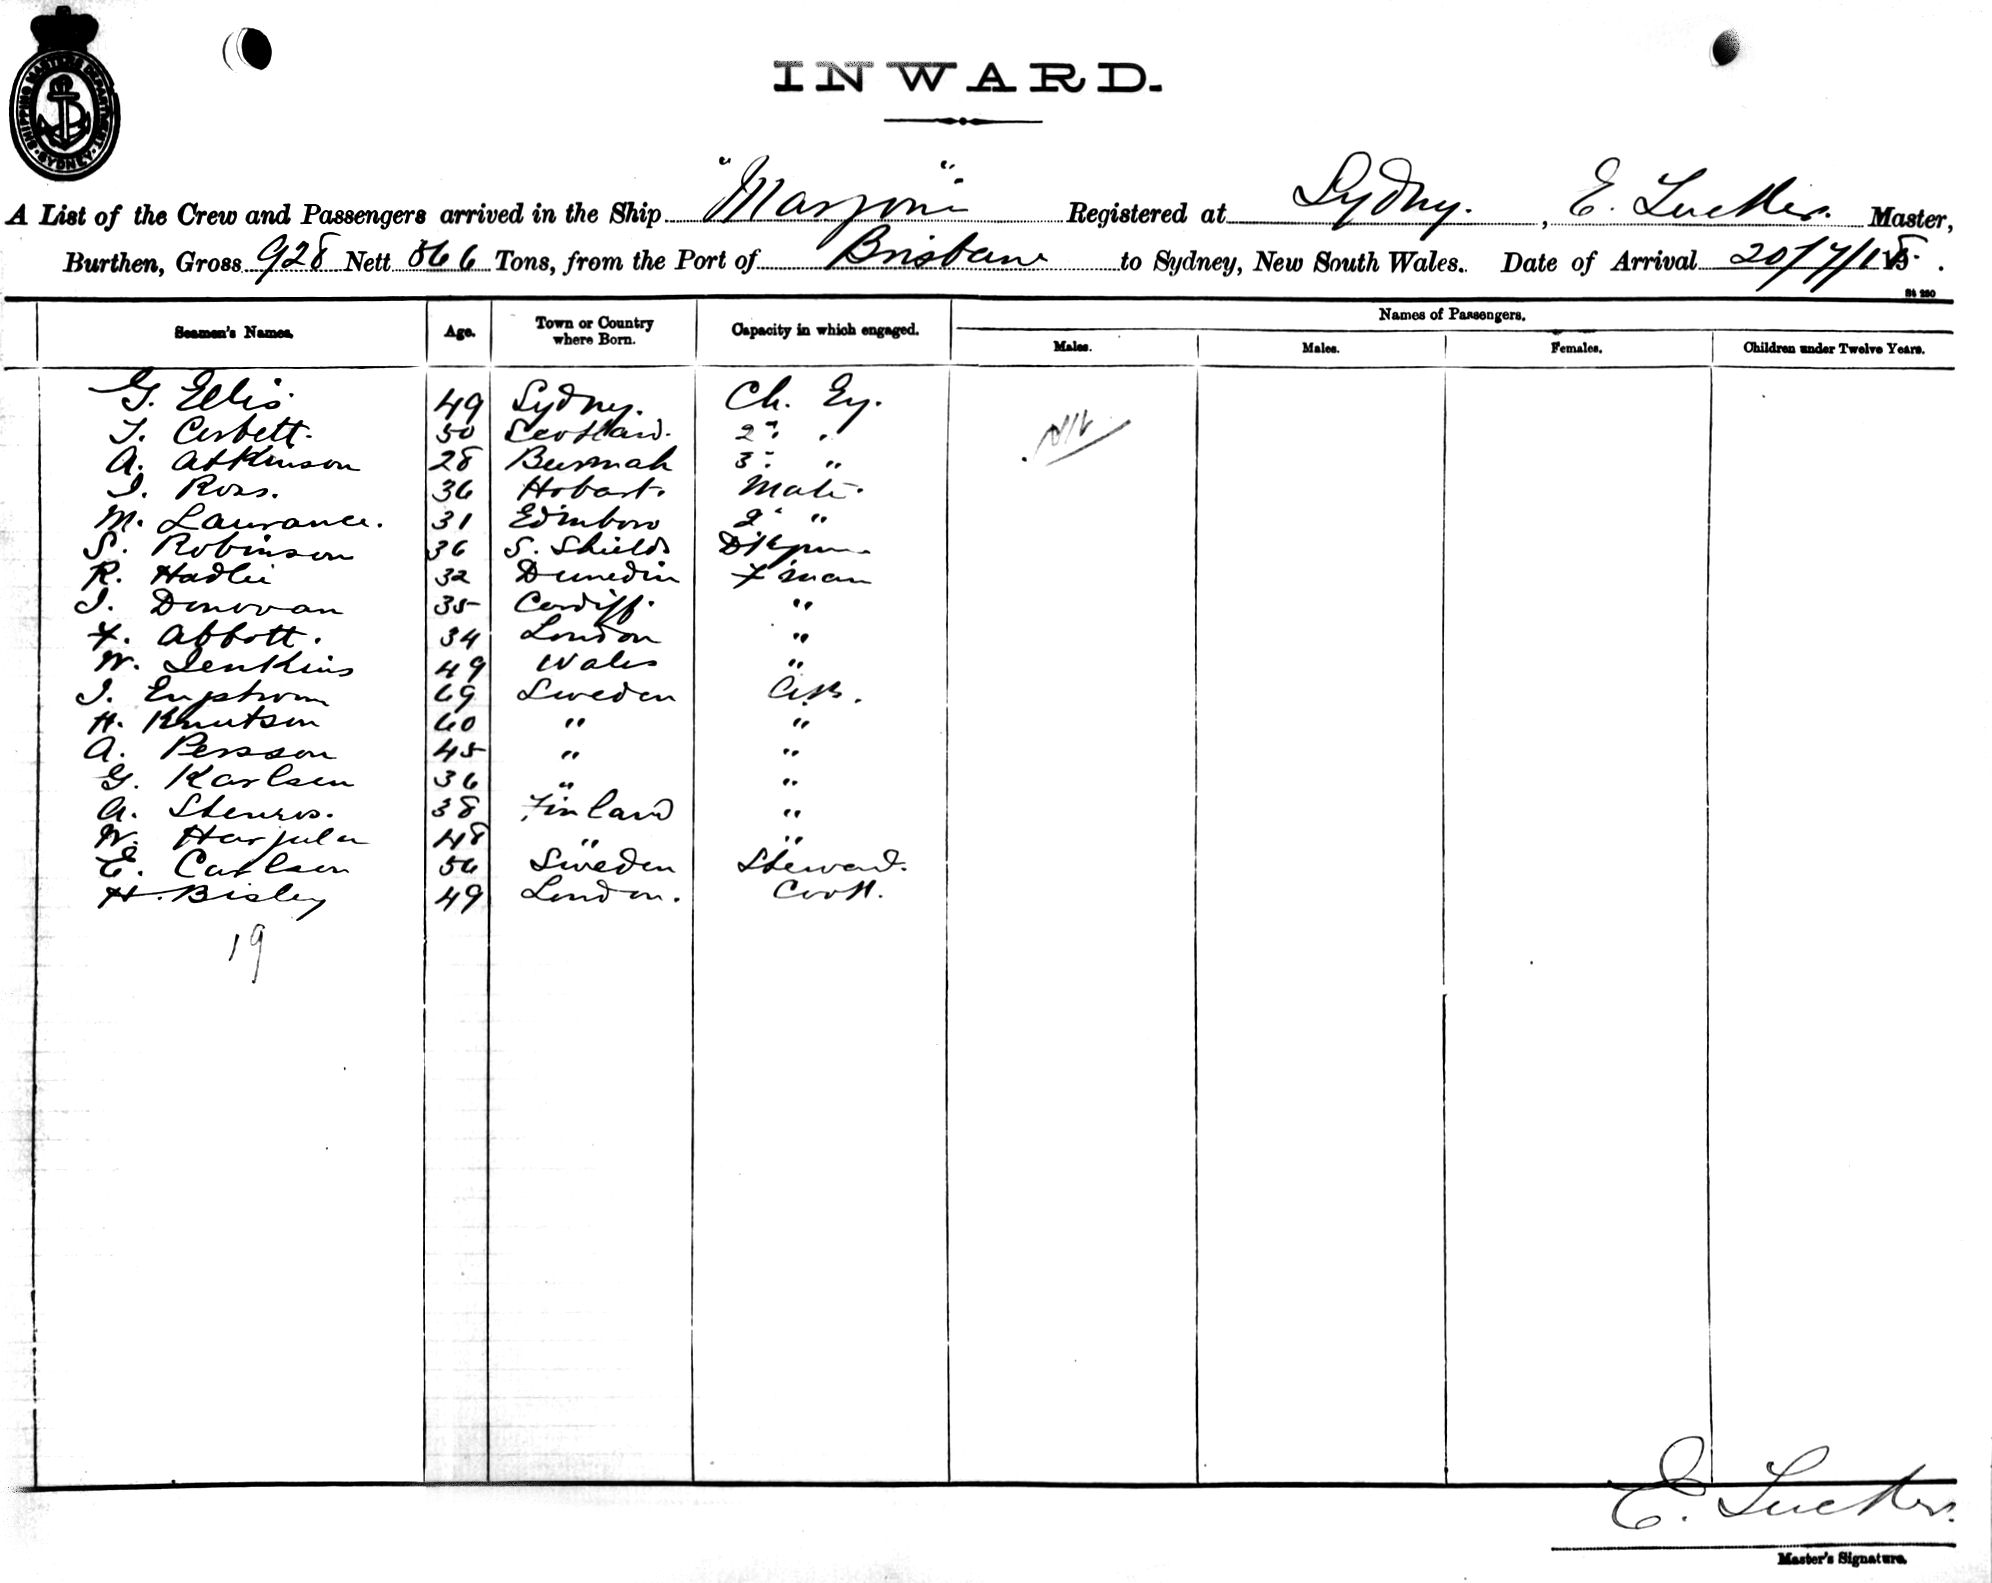 SHIPPING MASTERS DEPARTMENT SYDNEY
INWARD.
A List of the Crew and Passengers arrived in the Ship "Marjorie" Registered at Sydney. , E. Tucker. Master,
Burthen, Gross 928 Nett 566 Tons, from the Port of Brisbane to Sydney, New South Wales. Date of Arrival 20/7/18.
St 280
Seamen's Names. Age. Town or Country where Born. Capacity in which engaged. Names of Passengers.
Males. Males. Females. Children under Twelve Years.
G. Ellis 49 Sydney. Ch. Ey. Nil
T. Corbett. 50 Scotland. 2" "
A. Atkinson 28 Burmah 3" "
J. Ross. 36 Hobart. Mate.
M. Laurance. 31 Edinboro 2" "
S. Robinson 36 S. Shields Dkyman
R. Hadlei 32 Dunedin F'man
J. Donovan 35 Cardiff. "
F. Abbott. 34 London "
W. Jenkins 49 Wales "
J. Engstrom 69 Sweden A.B.
H. Knutson 60 " "
A. Persson 45 " "
G. Karlsen 36 " "
A. Stenros. 38 Finland "
W. Harjula 48 " "
E. Carlson 56 Sweden Steward.
H. Bisley 49 London. Cook.
19
E. Tucker.
Master's Signature.